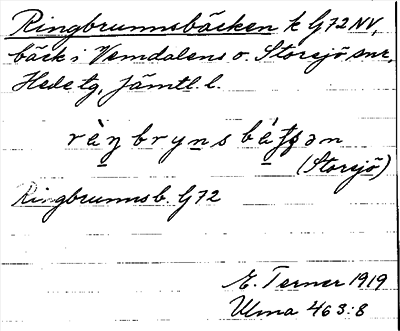 Ringbrunnsbäcken k G72 NV,
bäck i Vemdalens o. Storsjö snr,
Hede tg, Jämtl. l.
(Storsjö)
Ringbrunnsb. G72
E. Terner 1919
Ulma 463:8